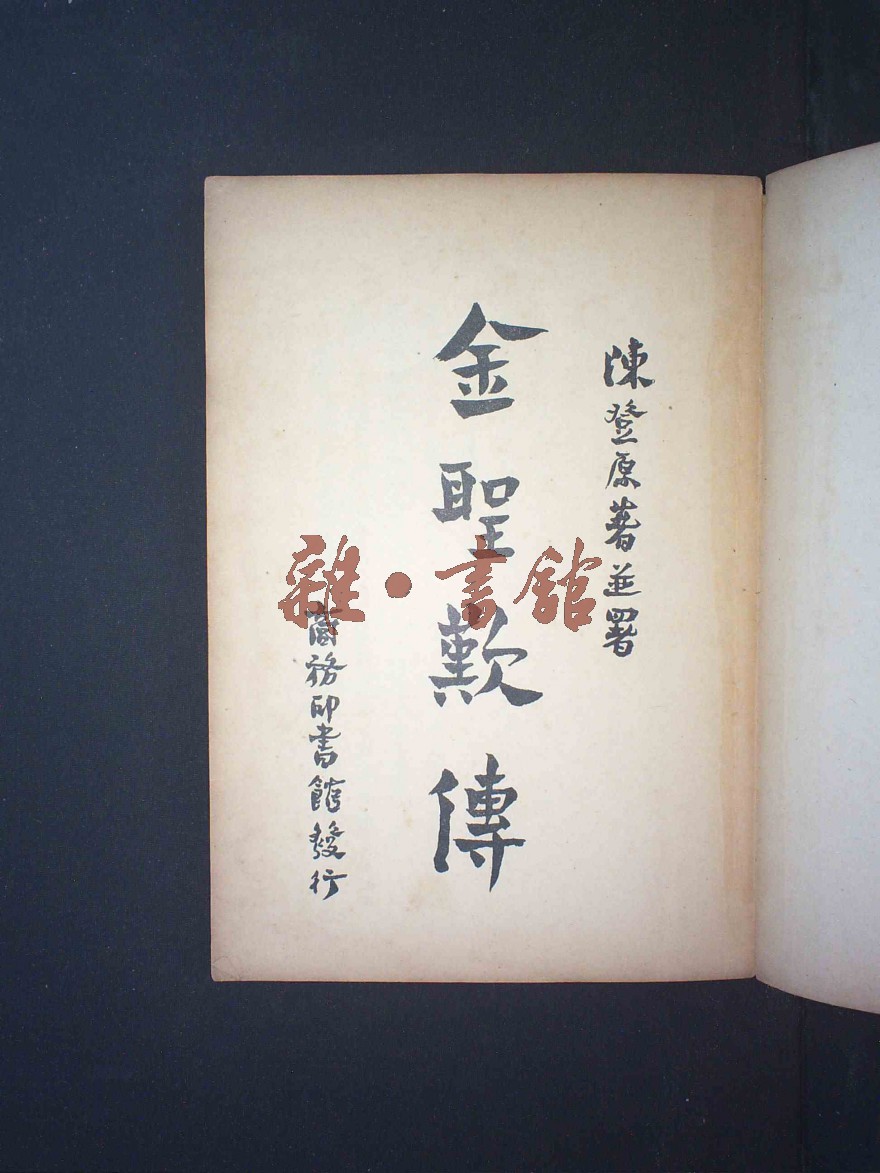 陳登原著並署
金聖歎傳
商務印書館發行
雜·書館